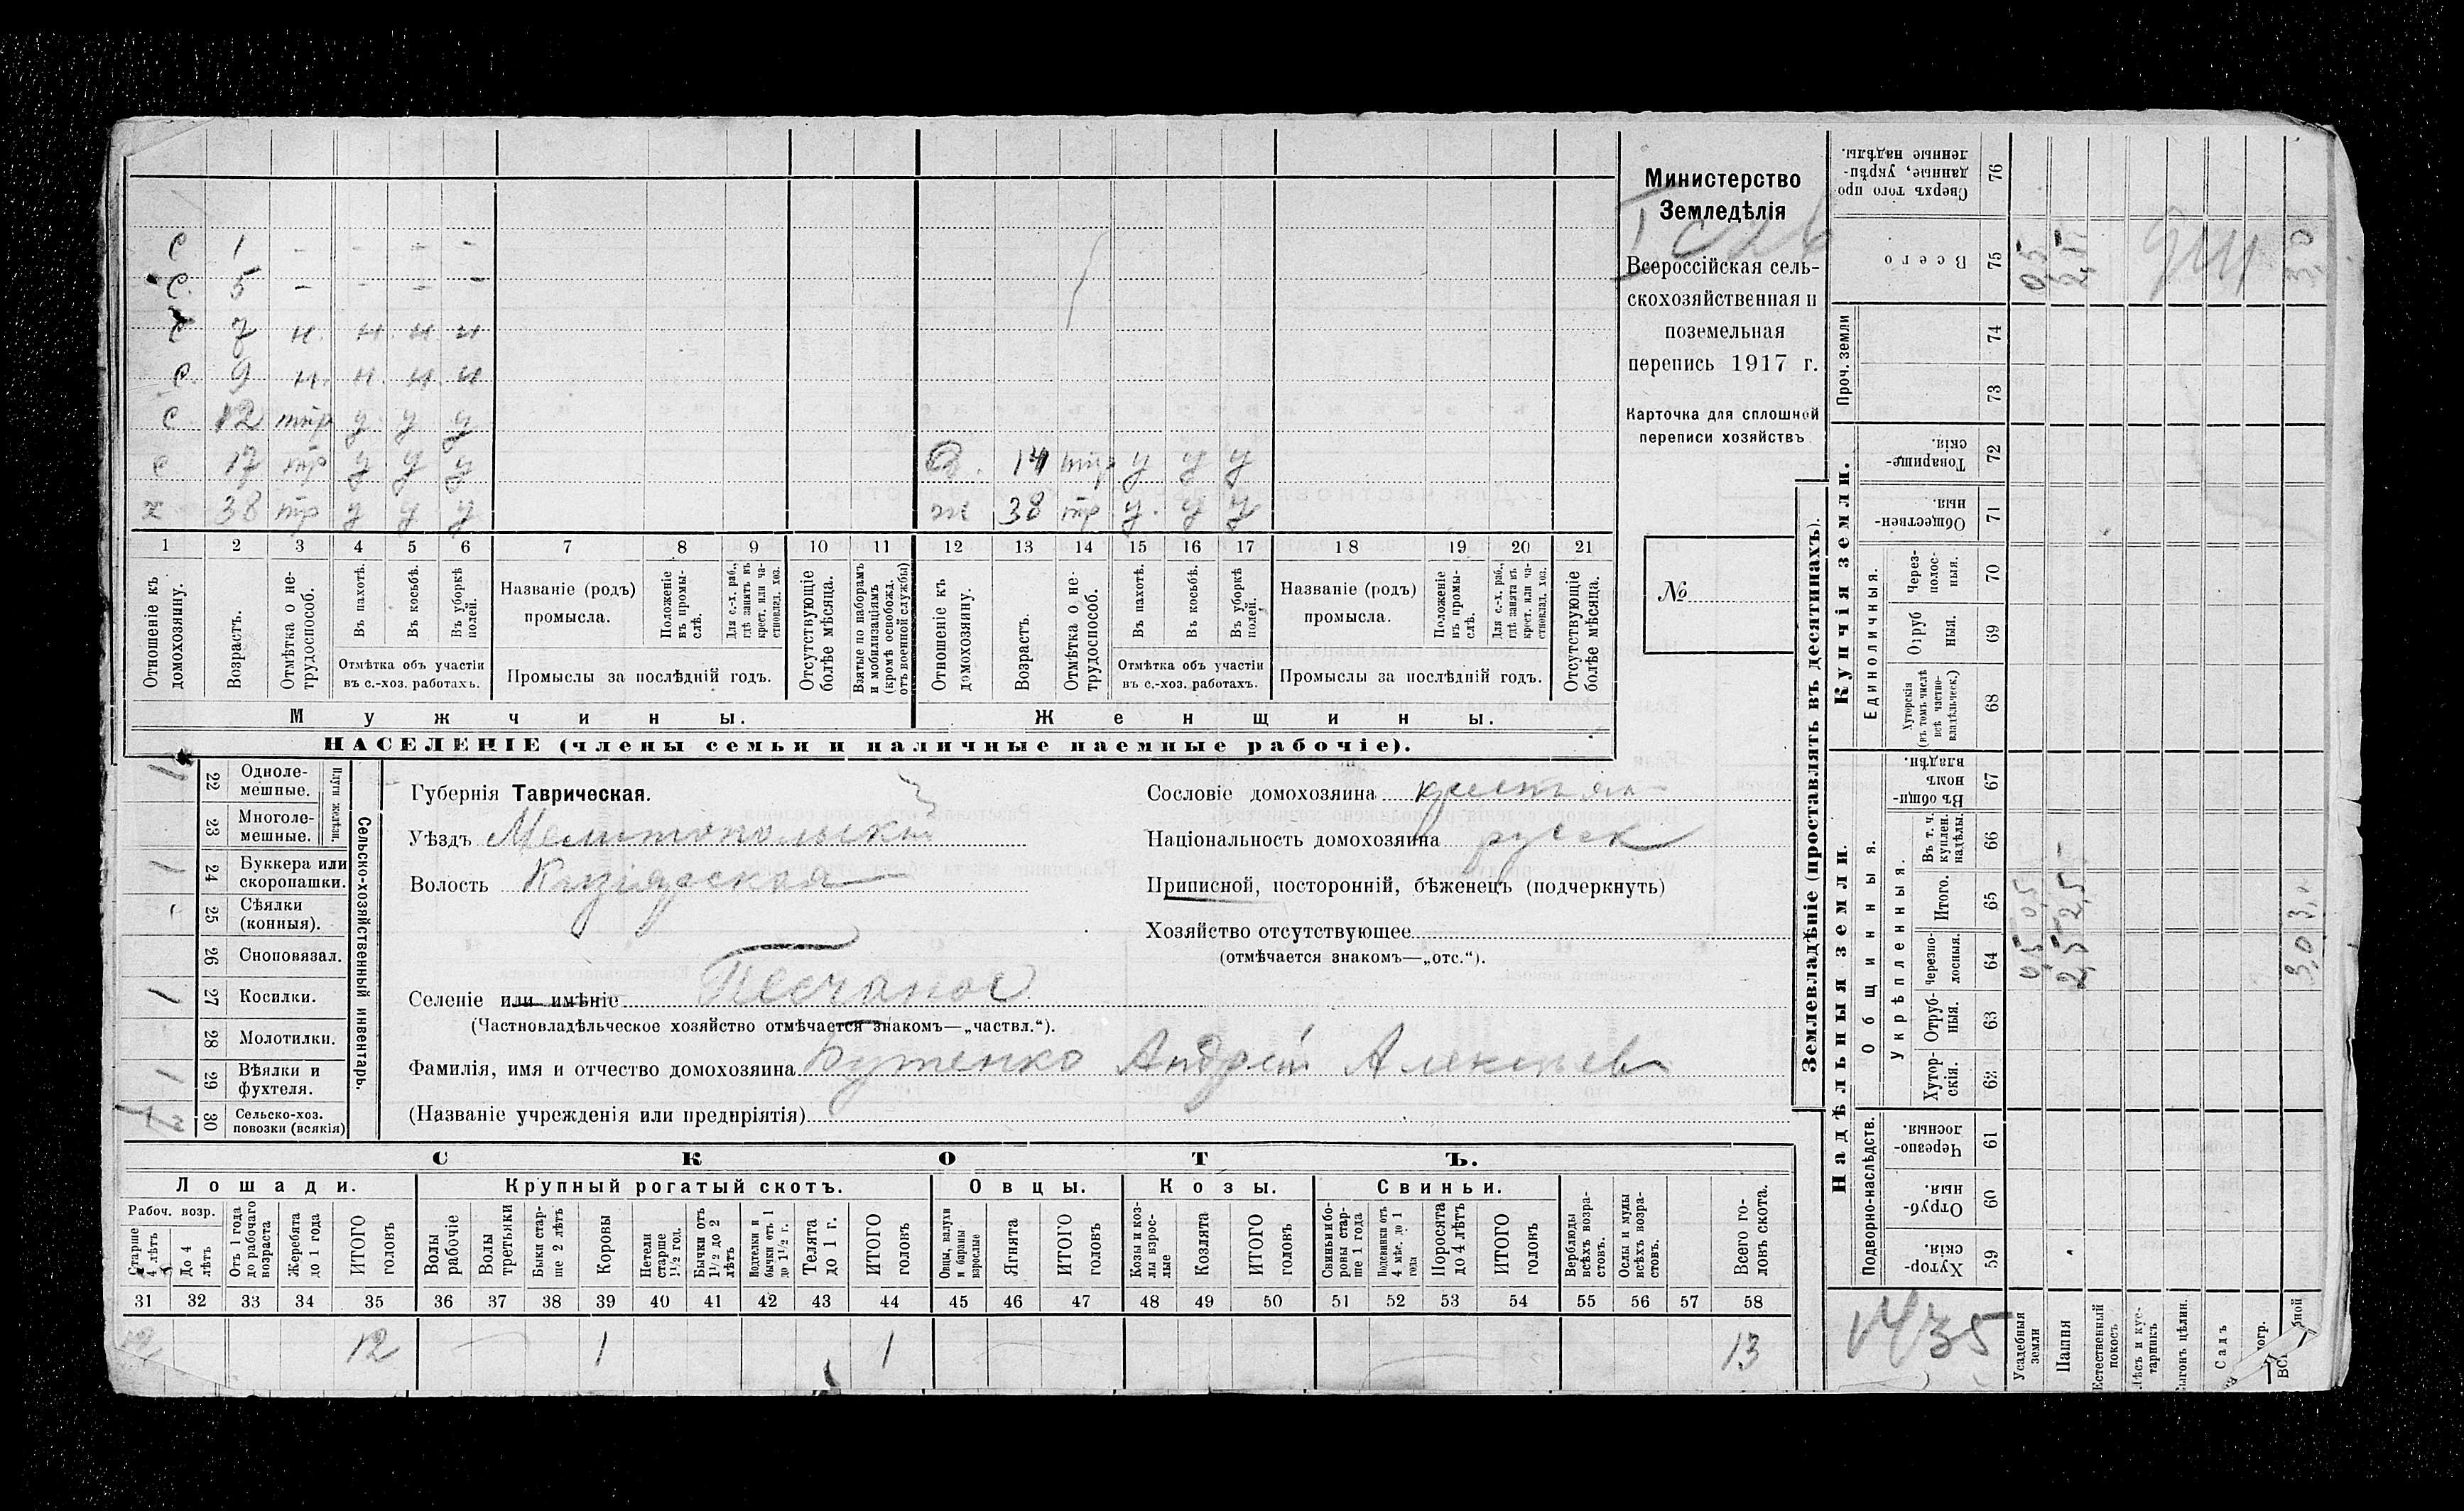 Министерство
Земледѣлія
Всероссійская сель-
скохозяйственная и
поземельная
перепись 1917 г.
Карточка для сплошной
переписи хозяйствъ
№
с 1 - - - -
с 5 - - - -
с 7 н. н н. н
с. 9 н. н. н н
с 12 тр у у у
с 17 тр у у у
х 38 тр у у у
14 тр у у у
ж 38 тр у. у у
1 2 3 4 5 6 7 8 9 10 11 12 13 14 15 16 17 18 19 20 21
Отношеніе къ домохозяину.
Возрастъ.
Отмѣтка о не-трудоспособ.
Въ пахотѣ.
Въ косьбѣ.
Въ уборкѣ полей.
Отмѣтка объ участіи
въ с.-хоз. работахъ.
Названіе (родъ)
промысла.
Положеніе въ промы-слѣ.
Для с.-х. раб., гдѣ занятъ въ крест. или ча-стновлад. хоз.
Промыслы за послѣдній годъ.
Отсутствующіе болѣе мѣсяца.
Взятые по наборамъ и мобилизаціямъ (кромѣ освобожд. отъ военной службы)
Отношеніе къ домохозяину.
Возрастъ.
Отмѣтка о не-трудоспособ.
Въ пахотѣ.
Въ косьбѣ.
Въ уборкѣ полей.
Отмѣтка объ участіи
въ с.-хоз. работахъ.
Названіе (родъ)
промысла.
Положеніе въ промы-слѣ.
Для с.-х. раб., гдѣ занята въ крест. или ча-стновлад. хоз.
Промыслы за послѣдній годъ.
Отсутствующіе болѣе мѣсяца.
Мужчины.
Женщины.
НАСЕЛЕНІЕ (члены семьи и наличные наемные рабочіе).
Сельско-хозяйственный инвентарь.
Плуги желѣзн.
1 22 Одноле-мешные.
23 Многоле-мешные.
1 24 Буккера или скоропашки.
25 Сѣялки (конныя).
26 Сноповязал.
1 27 Косилки.
28 Молотилки.
1 29 Вѣялки и фухтеля.
30 Сельско-хоз. повозки (всякія)
Губернія Таврическая.
Уѣздъ Мелитопольскій
Волость
Селеніе или имѣніе Песчаное
(Частновладѣльческое хозяйство отмѣчается знакомъ—„частвл.“).
Фамилія, имя и отчество домохозяина Бутенко Андрей Алексѣев
(Названіе учрежденія или предпріятія)
Сословіе домохозяина крестьян
Національность домохозяина русск
Приписной, посторонній, бѣженецъ (подчеркнуть)
Хозяйство отсутствующее
(отмѣчается знакомъ—„отс.“).
СКОТЪ.
Лошади. Крупный рогатый скотъ. Овцы. Козы. Свиньи.
Рабоч. возр.
Старше 4 лѣтъ
До 4 лѣтъ
Отъ 1 года до рабочаго возраста
Жеребята до 1 года
ИТОГО головъ
Волы рабочіе
Волы третьяки
Быки стар-ше 2 лѣтъ
Коровы
Нетели старше 1½ год.
Бычки отъ 1½ до 2 лѣтъ
Подтелки и бычки отъ 1 до 1½ г.
Телята до 1 г.
ИТОГО головъ
Овцы, валухи и бараны взрослые
Ягнята
ИТОГО головъ
Козы и коз-лы взрос-лые
Козлята
ИТОГО головъ
Свиньи и бо-ровы стар-ше 1 года
Подсвинки отъ 4 мѣс. до 1 года
Поросята до 4 лѣтъ
ИТОГО головъ
Верблюды всѣхъ возра-стовъ.
Ослы и мулы всѣхъ возра-стовъ.
Всего го-ловъ скота.
31 32 33 34 35 36 37 38 39 40 41 42 43 44 45 46 47 48 49 50 51 52 53 54 55 56 57 58
12 12 1 1 13
Землевладѣніе (проставлять въ десятинахъ).
Надѣльныя земли. Купчія земли. Проч. земли
Подворно-наслѣдств.
Общинныя.
Укрѣпленныя.
Единоличныя.
Хутор-скія. 59
Отруб-ныя. 60
Черезпо-лосныя. 61
Хутор-скія. 62
Отруб-ныя. 63
Черезпо-лосныя. 64
Итого. 65
Въ т. ч. куплен. надѣлы. 66
Въ общи-номъ владѣн. 67
Хуторскія (въ томъ числѣ всѣ частно-владѣльческ.) 68
Отруб ныя. 69
Через-полос-ныя. 70
Обществен-ныя. 71
Товарище-скія. 72
73
74
Всего 75
Сверхъ того про-данные, укрѣп-ленные надѣлы. 76
Усадебныя земли 0,5 0,5 0,5
Пашня 2,5 2,5 2,5
Естественный покосъ
Лѣсъ и кус-тарникъ
Выгонъ цѣлин.
Садъ
3,0 3,0 3,0
1435